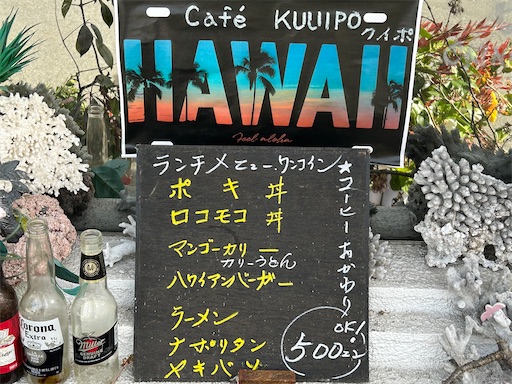 Café KUUIPO
クイポ
HAWAII
Feel aloha
ランチメニュー・ワンコイン
ポキ丼
ロコモコ丼
マンゴーカリー
カリーうどん
ハワイアンバーガー
ラーメン
ナポリタン
ヤキバソ
★コーヒーおかわりOK!
500コイン
Corona
Extra
Miller
GENUINE
DRAFT